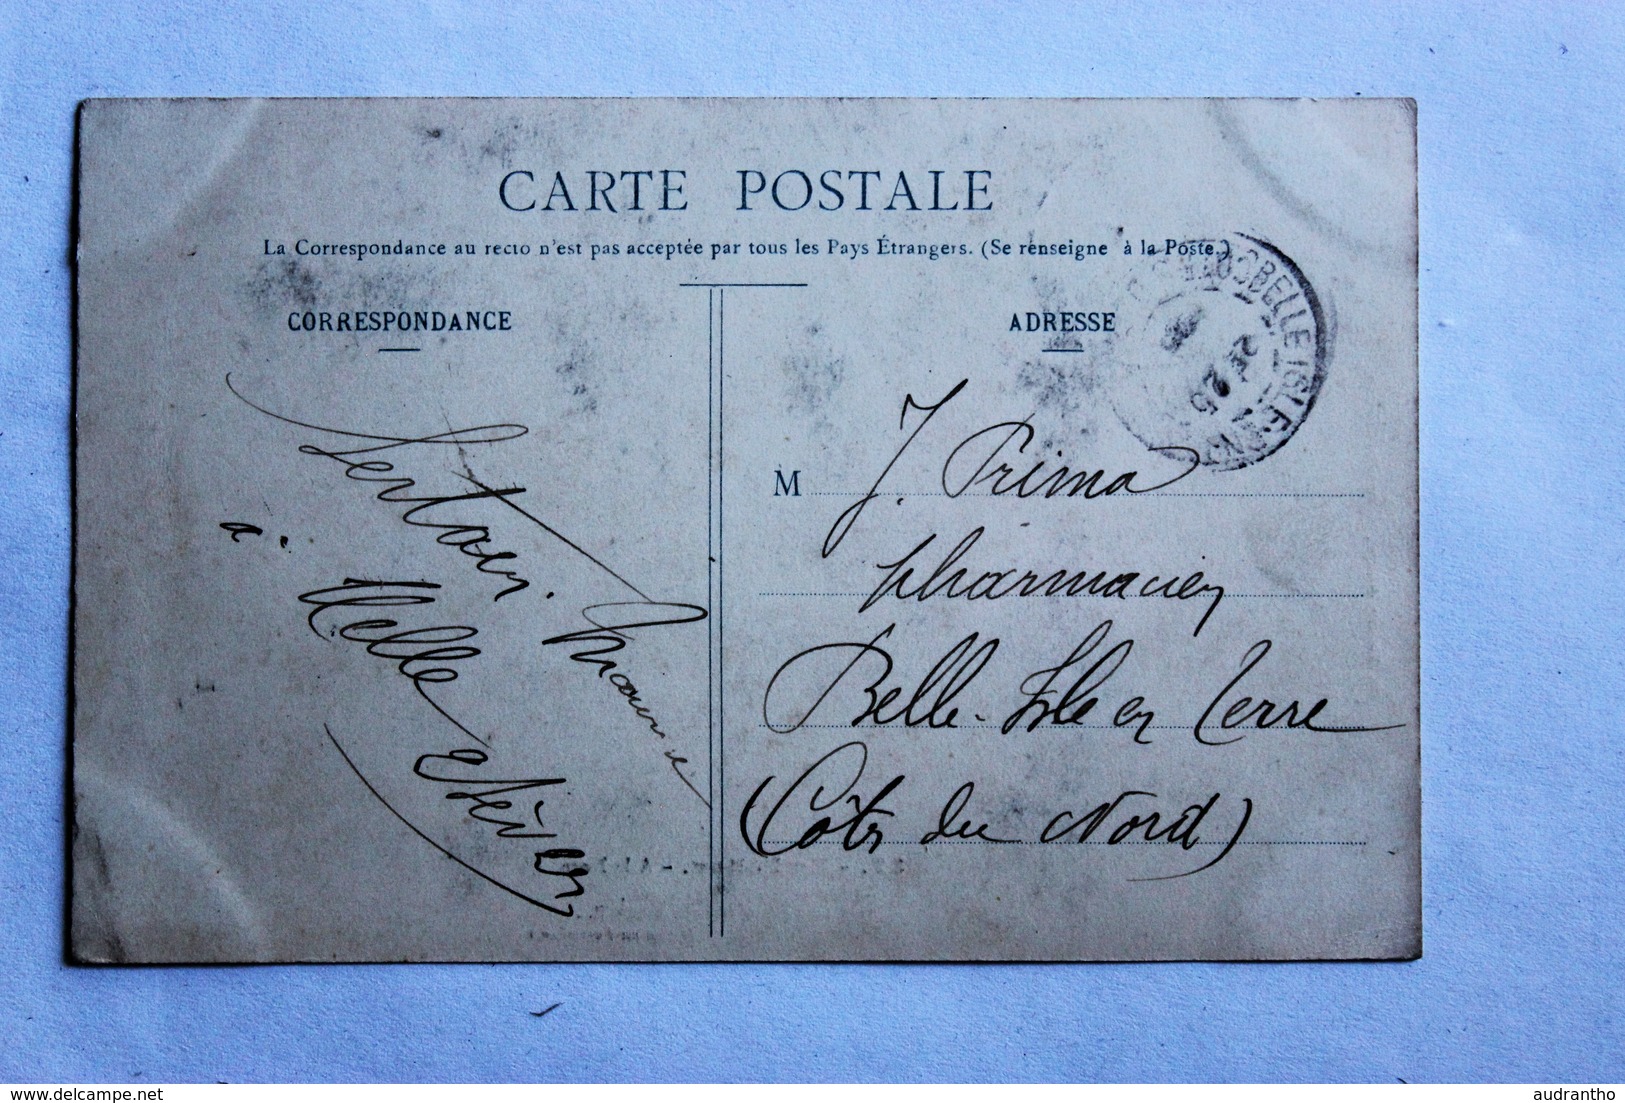 CARTE POSTALE
La Correspondance au recto n'est pas acceptée par tous les Pays Étrangers. (Se renseigne à la Poste.)
CORRESPONDANCE
à Melle
ADRESSE
M J. Prima
pharmacien
Belle-Isle en Terre
(Côtes du Nord)
BELLE ISLE
25
http://www.delcampe.net
audrantho